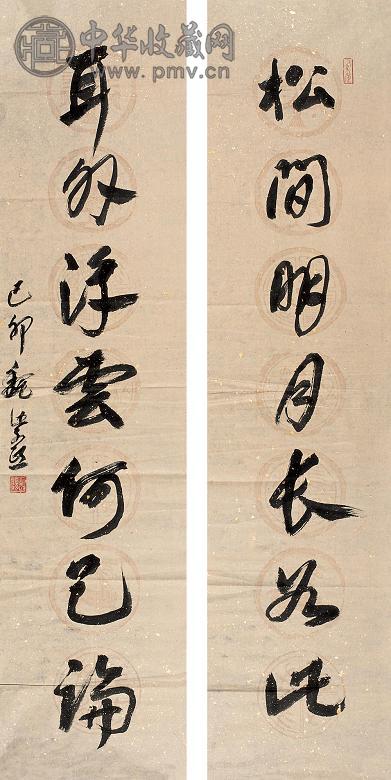 中华收藏网
www.pmv.cn
松間明月长如此
身外浮雲何足論
己卯魏